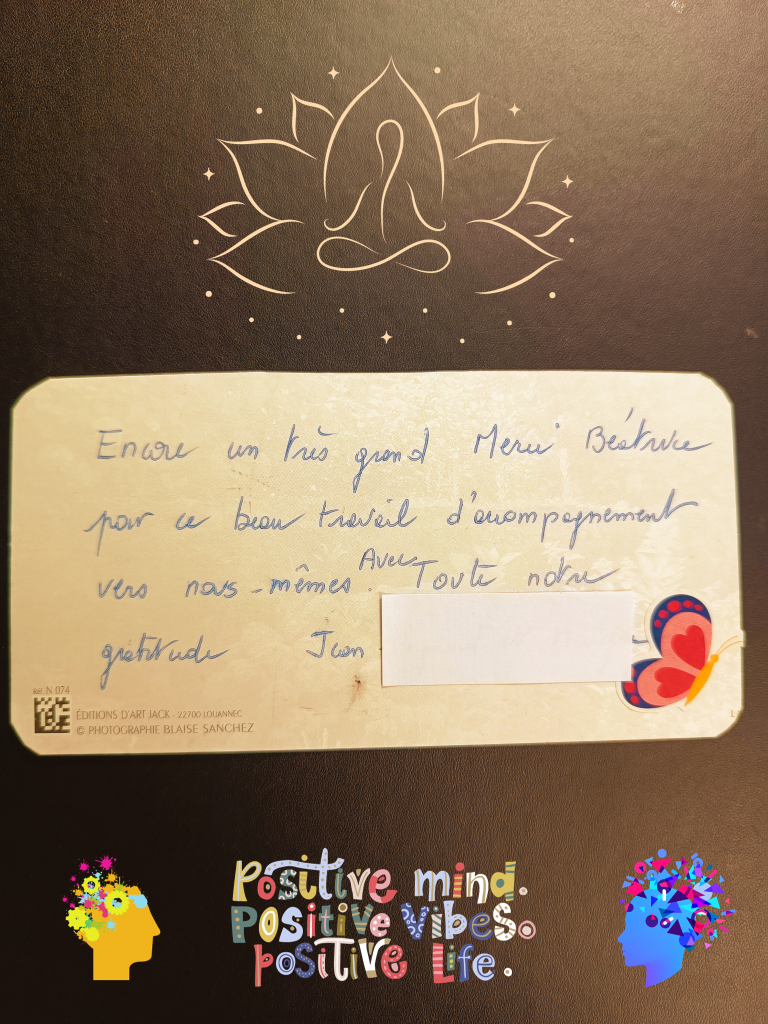 Encore un très grand Merci Béatrice
pour ce beau travail d'accompagnement
vers nous-mêmes. Avec Toute notre
gratitude Jean
Réf. N 074
ÉDITIONS D'ART JACK - 22700 LOUANNEC
© PHOTOGRAPHIE BLAISE SANCHEZ
Positive mind.
Positive vibes.
positive Life.